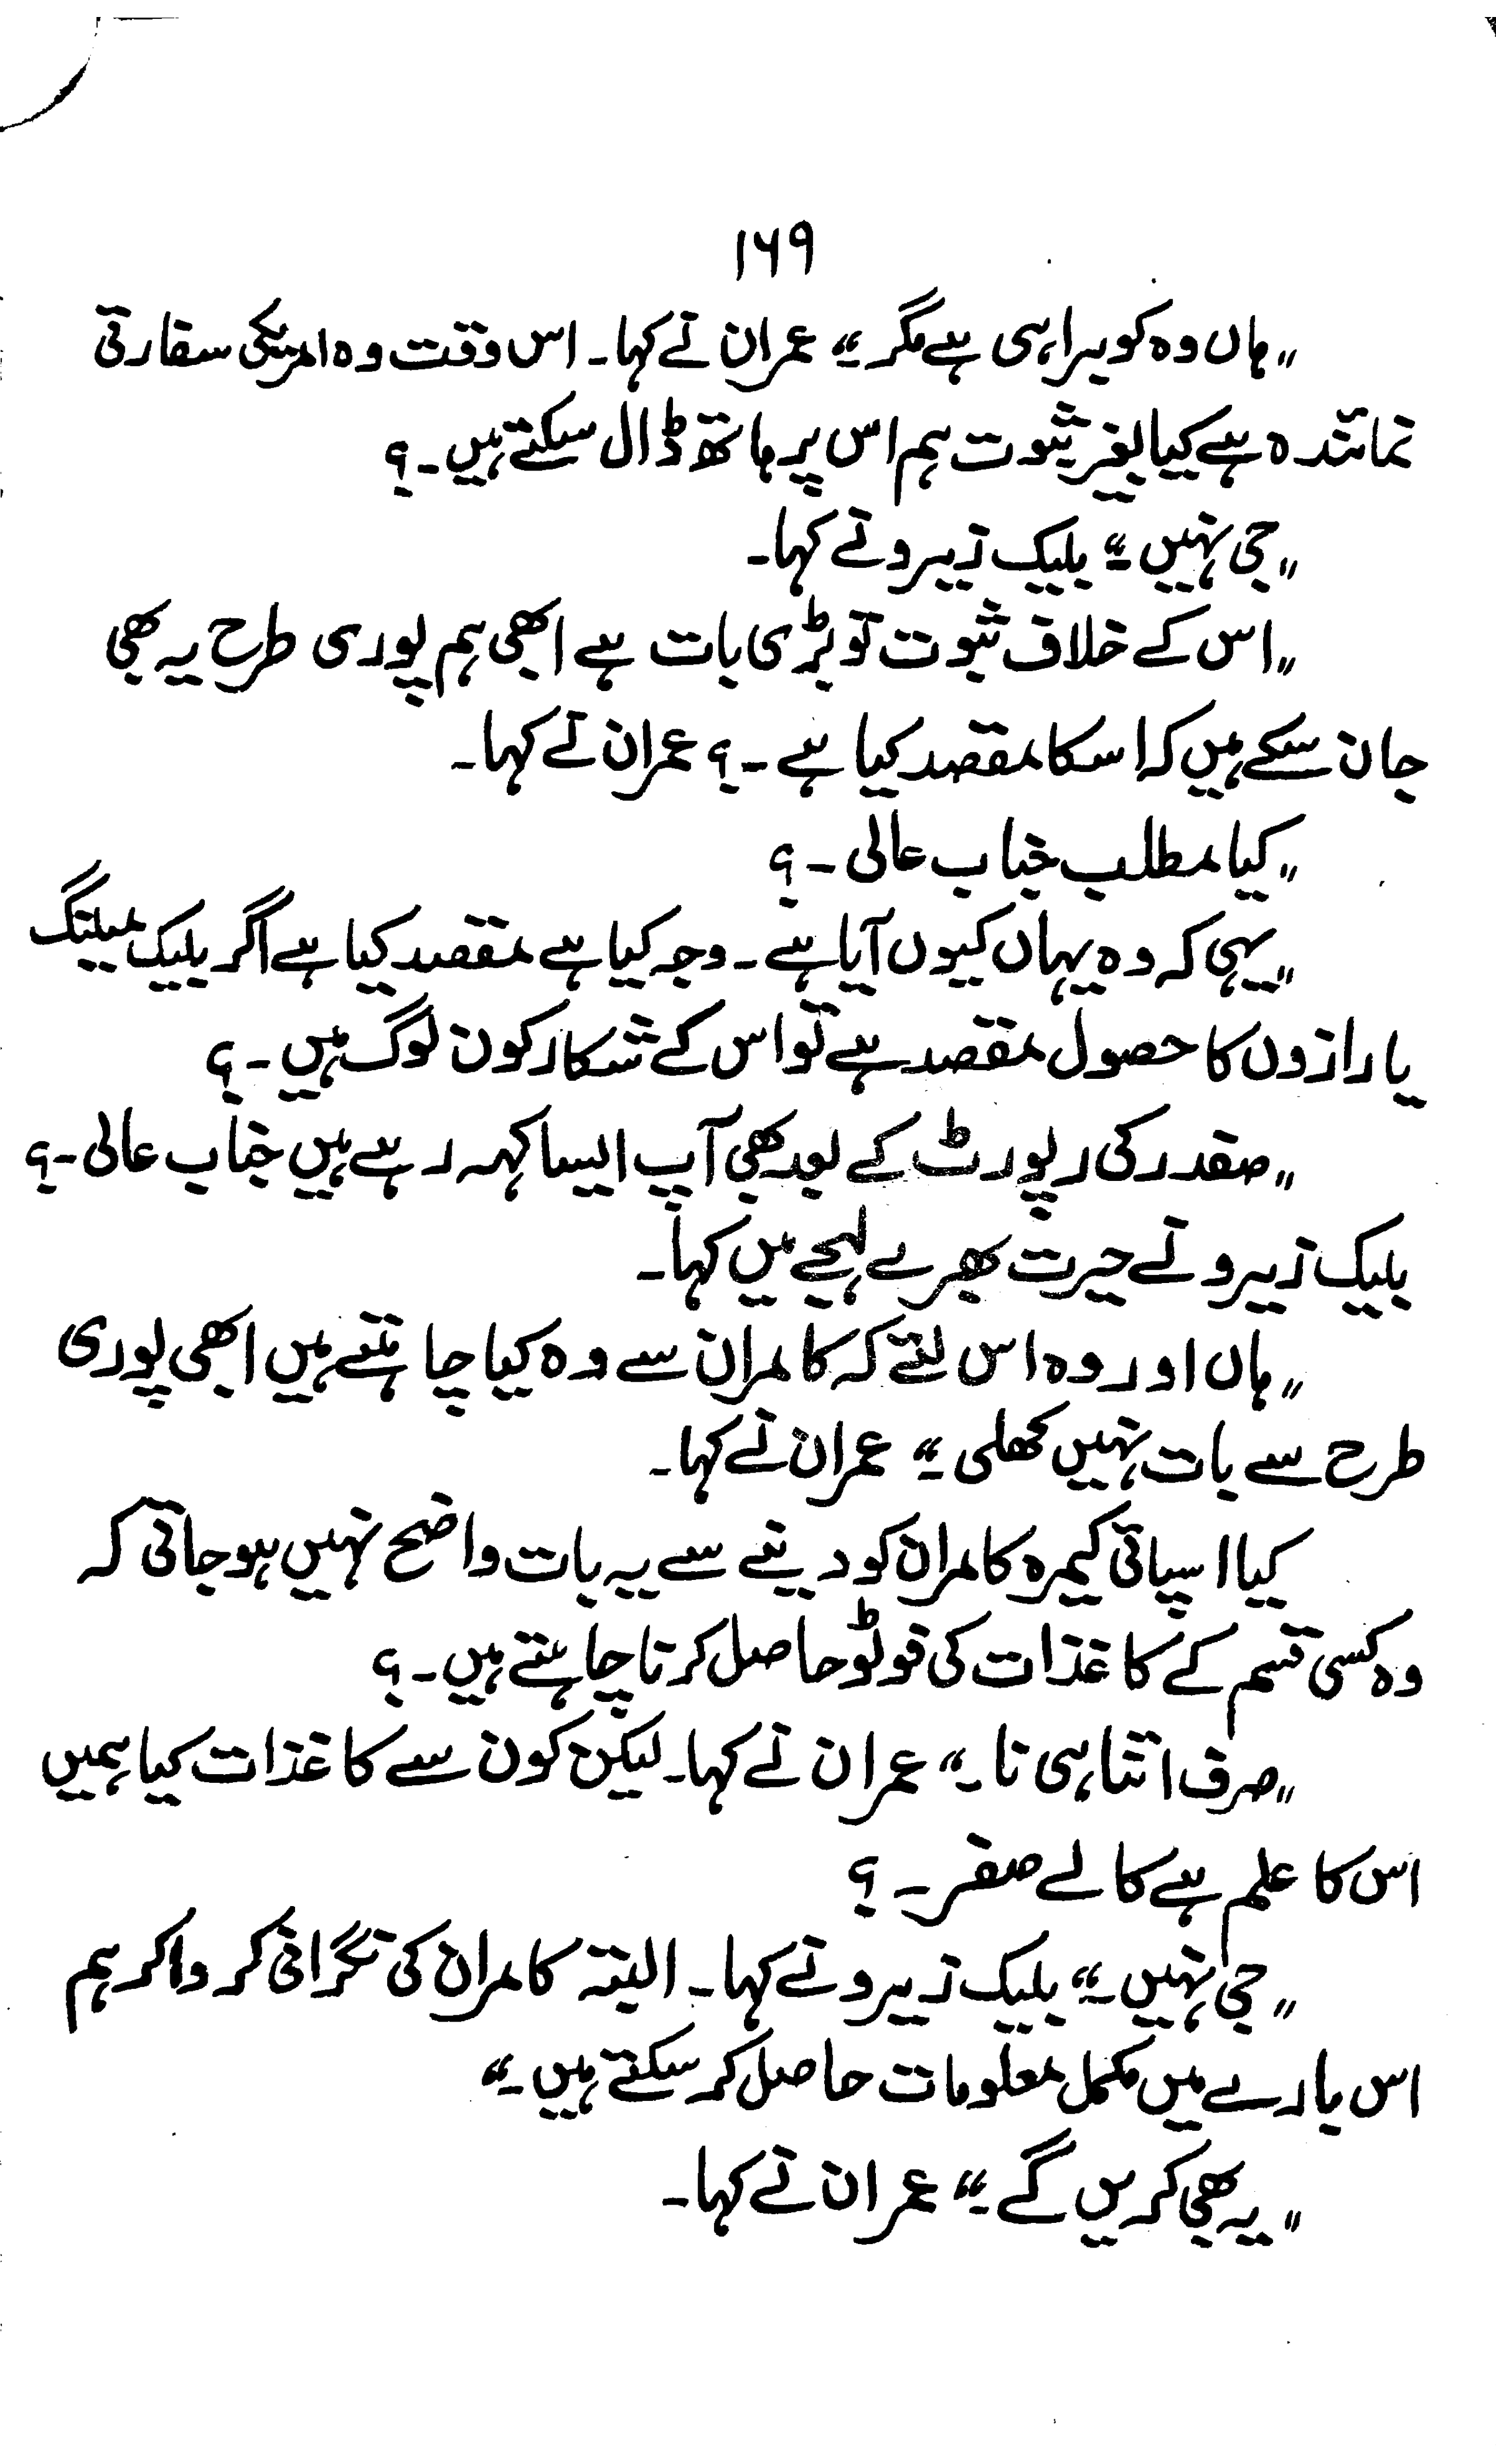 ۱۶۹
„ہاں وہ کوبرا ہی ہے مگر۔“ عمران نے کہا۔ اس وقت وہ امریکی سفارتی
نمائندہ ہے کیا بغیر ثبوت ہم اس پر ہاتھ ڈال سکتے ہیں۔؟
„جی نہیں۔“ بلیک زیرو نے کہا۔
„اس کے خلاف ثبوت تو بڑی بات ہے ابھی ہم پوری طرح یہ بھی
جان سکے ہیں کہ اسکا مقصد کیا ہے۔؟ عمران نے کہا۔
„کیا مطلب جناب عالی۔؟
„یہی کہ وہ یہاں کیوں آیا ہے۔ وجہ کیا ہے مقصد کیا ہے اگر بلیک میلنگ
یا رازوں کا حصول مقصد ہے تو اس کے شکار کون لوگ ہیں۔؟
„صفدر کی رپورٹ کے بعد بھی آپ ایسا کہہ رہے ہیں جناب عالی۔؟
بلیک زیرو نے حیرت بھرے لہجے میں کہا۔
„ہاں اور وہ اس لئے کہ کامران سے وہ کیا چاہتے ہیں ابھی پوری
طرح سے بات نہیں کھلی۔“ عمران نے کہا۔
کیا اسپائی کیمرہ کامران کو دینے سے یہ بات واضح نہیں ہو جاتی کہ
وہ کسی قسم کے کاغذات کی فوٹو حاصل کرنا چاہتے ہیں۔؟
„صرف اتنا ہی نا۔“ عمران نے کہا۔ لیکن کون سے کاغذات کیا ہمیں
اس کا علم ہے کالے صفر۔؟
„جی نہیں۔“ بلیک زیرو نے کہا۔ البتہ کامران کی نگرانی کروا کر ہم
اس بارے میں مکمل معلومات حاصل کر سکتے ہیں۔“
„یہ بھی کریں گے۔“ عمران نے کہا۔